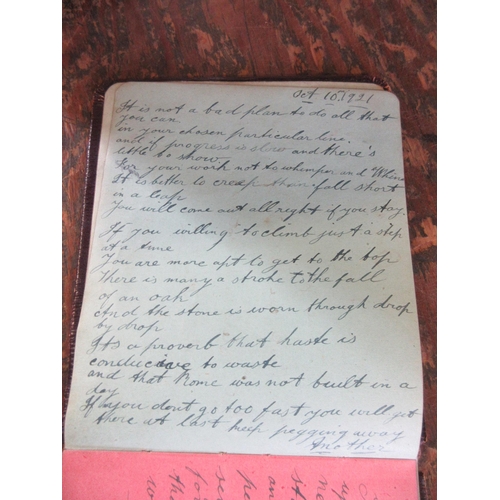 Oct 10, 1931
It is not a bad plan to do all that
you can
in your chosen particular line.
and if progress is slow and there's
little to show
For your work not to whimper and Whine
It is better to creep than fall short
in a leap
You will come out all right if you stay.
If you willing to climb just a step
at a time
You are more apt to get to the top
There is many a stroke to the fall
of an oak
And the stone is worn through drop
by drop
Its a proverb that haste is
conducive to waste
and that Rome was not built in a
day
If you dont go too fast you will get
there at last keep pegging away
Another